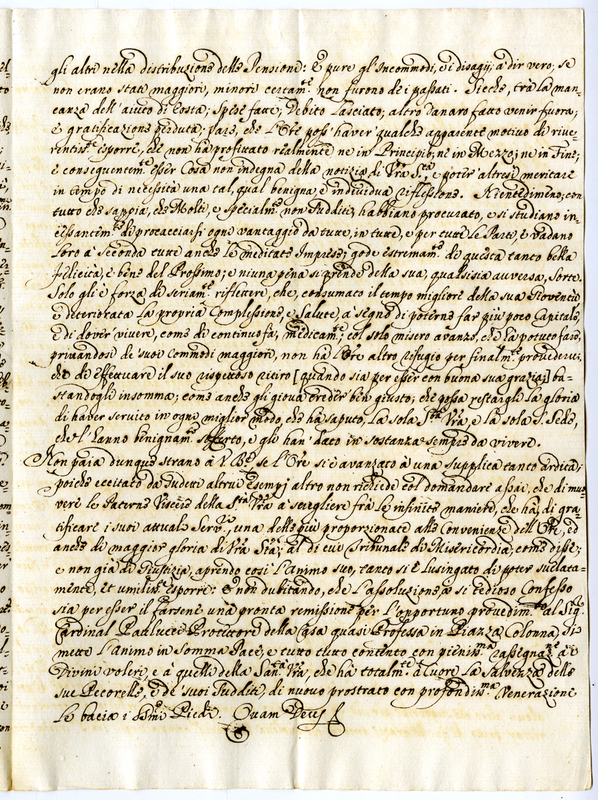 gli altri nella distribuzione delle Pensioni: è pure gl'Incommodi, e i disagij, à dir vero, se
non erano stati maggiori, minori certam.te non furono de i passati. Siche, trà la man-
canza dell'aiuto di Costa; Spese fatte; Debito Lasciato; altro danaro fatto venir fuora;
è gratificazione perduta; pare, che l'Ore possi haver qualche apparente motivo di rive-
rentem.te esporre, che non ha profittato realmente ne in Principio, ne in Mezzo, ne in Fine;
e conseguentem.te esser Cosa non indegna della notizia di V'ra S.tà, e poter altresi meritare
in tempo di necessità una tal, qual benigna, e individua riflessione. Non
tutto che sappia, che Molti, e specialm.te non Sudditi, habbiano procurato, e si studiano in-
cessantem.te di procacciarsi ogni vantaggio da tutte, in tutte, e per tutte le Parti, e vadano
loro à Seconda tutte anche le meditate Imprese; gode estremam.te di questa tanto bella
felicità, e bene del Prossimo; e niuna pena si prende della sua, qualsisia avversa, sorte.
Solo gli è forza di seriam.te riflettere, che, consumato il tempo migliore della sua Gioventù
e deteriorata la propria Complessione, e Salute, à segno di poterne far più poco Capitale,
È di dover vivere, come di continuo fà, col solo misero avanzo, che hà potuto fare,
privandosi de suoi Commodi maggiori, non hà l'Ore altro rifugio per finalm.te provedersi,
che di effettuare il suo rispettoso ritiro [quando sia per esser con buona sua grazia] ba-
standogli insomma; come anche gli giova creder ben giusto; che possa restargli la gloria
di haber servito in ogni miglior modo, che hà saputo, la sola S.tà V'ra, e la sola S. Sede,
che l'hanno benignam.te sofferto, e gli han' dato in sostanza sempre da vivere.
Non paia dunque strano à V. B.ne, se l'Ore si è avanzato à una supplica tanto ardita;
poiche eccitato da sudetti altrui esempj altro non richiede col domandare assai, che di muo-
vere le Paterne Viscere della S.tà V'ra à scegliere frà le infinite maniere, che hà, di gra-
tificare i suoi attuali Serv.ri, una delle più proporzionate alle Convenienze dell'Ore, ed
anche di maggior gloria di V'ra S.tà; al di cui Tribunale di Misericordia, come disse;
e non già di Giustizia, aprendo così l'animo suo, tanto si è lusingato di poter
mente, et umilm.te esporre: È non dubitando, che l'assoluzione à sì tedioso Confesso
sia per esser il farsene una pronta remissione per l'opportuno provedim.to al Sig.
Cardinal Paolucci Protettore della Casa quasi Professa in Piazza Colonna, Ri-
mette l'animo in somma Pace; e tutto tutto contento con pieniss.ma rassegnaz.ne à i
Divini voleri, e à quelli della San.tà V'ra, che hà totalm.te à Cuore la Salvezza delle
sue Pecorelle, e de' suoi Sudditi, di nuovo prostrato con profondiss.ma Venerazione
Le bacia i SS.mi Piedi. Quam Deus